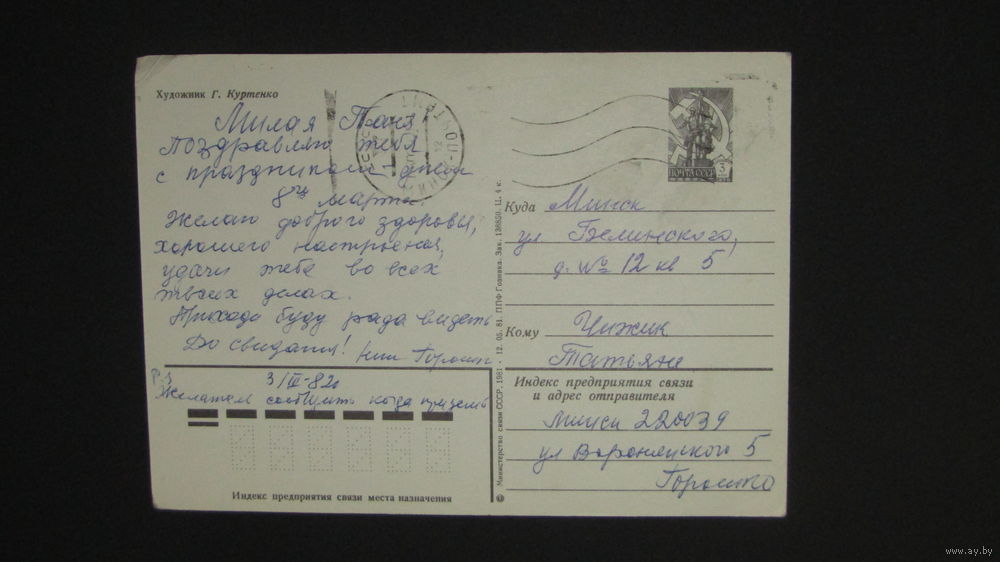 Художник Г. Куртенко
Милая Таня
Поздравляю тебя
с праздником днем
8ое марта
Желаю доброго здоровья,
хорошего настроения,
удачи тебе во всех
твоих делах.
Приходи буду рада видеть
До свидания!
3/III-82г
Желательно сообщить когда придешь
Индекс предприятия связи места назначения
© Министерство связи СССР. 1981 - 12. 05. 81. ППФ Гознака. Зак. 136850. Ц. 4 к.
ПОЧТА СССР 3
Куда Минск
ул Белинского,
д. № 12 кв 5
Кому Чижик
Татьяне
Индекс предприятия связи
и адрес отправителя
Минск 220039
ул Воронянского 5
Горошко
www.ay.by